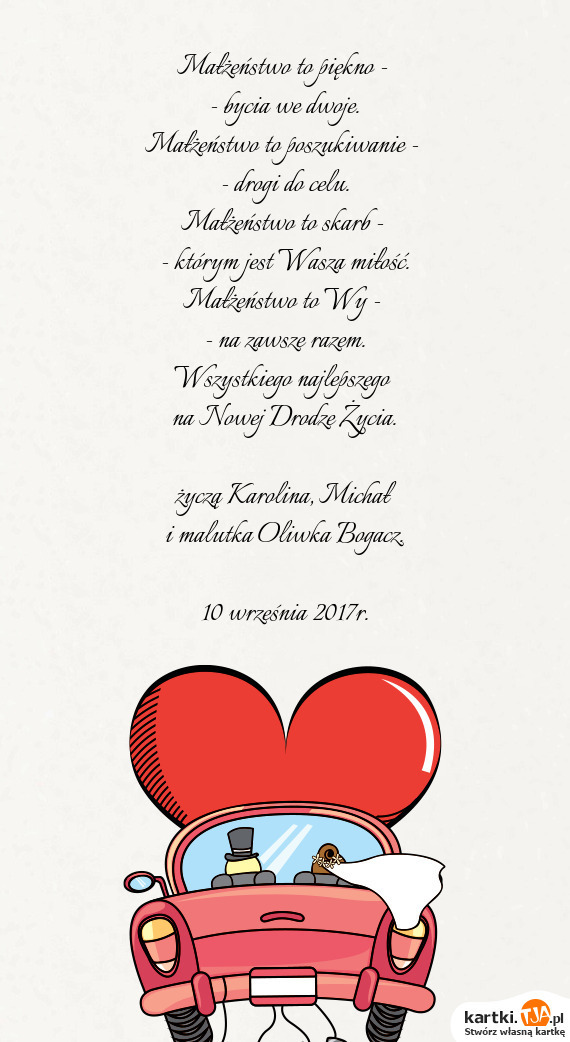 Małżeństwo to piękno -
- bycia we dwoje.
Małżeństwo to poszukiwanie -
- drogi do celu.
Małżeństwo to skarb -
- którym jest Wasza miłość.
Małżeństwo to Wy -
- na zawsze razem.
Wszystkiego najlepszego
na Nowej Drodze Życia.
życzą Karolina, Michał
i malutka Oliwka Bogacz.
10 września 2017r.
kartki.TJA.pl
Stwórz własną kartkę